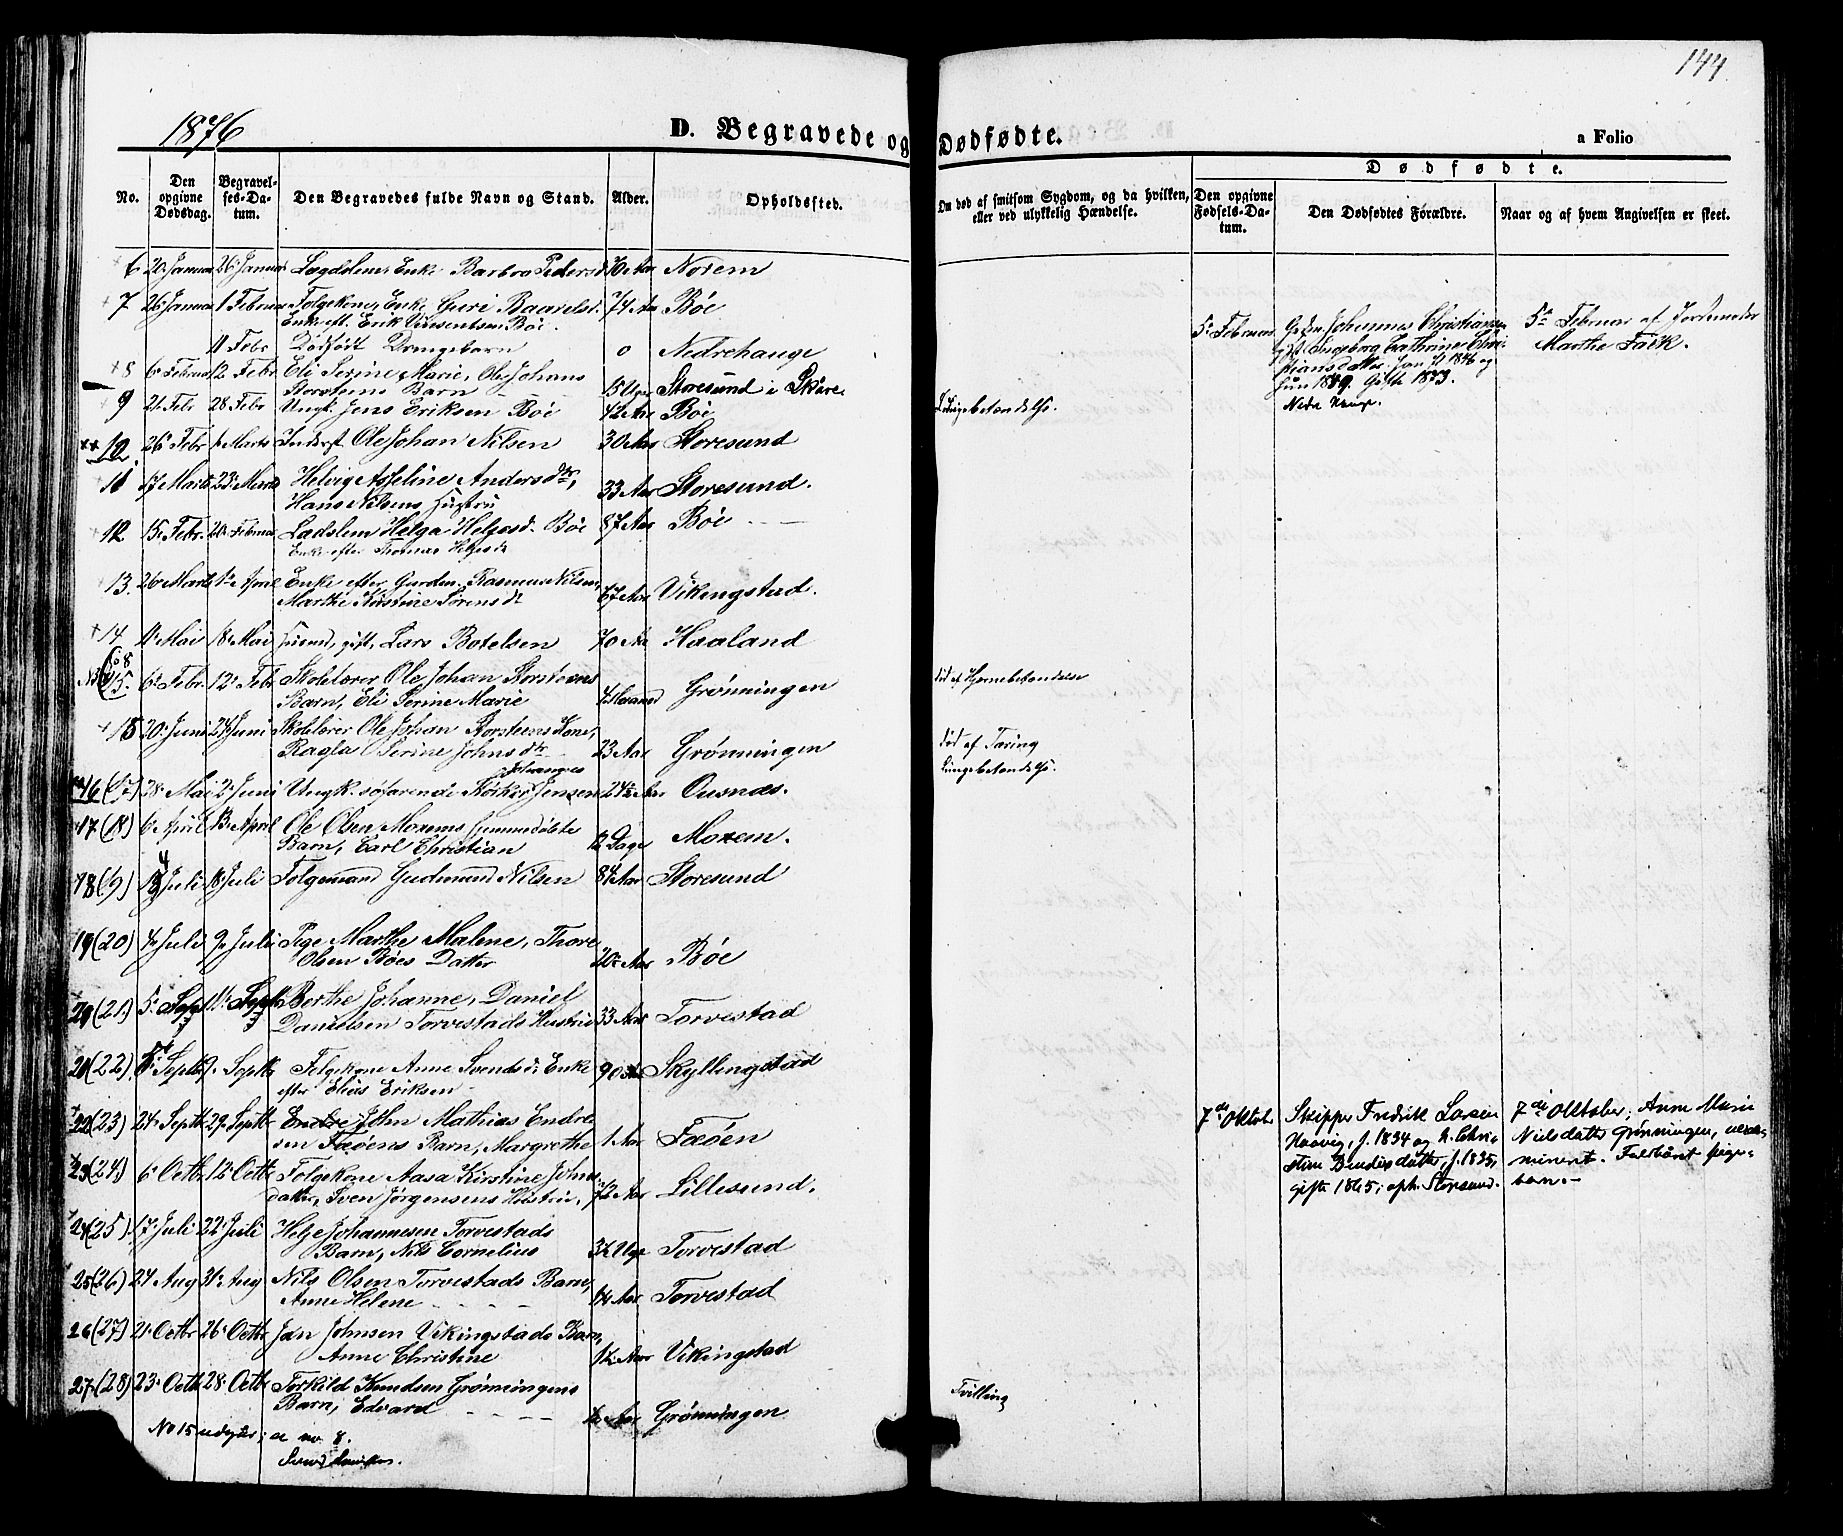 144.
1876
D. Begravede og Dødfødte.
a Folio
No.
Den opgivne Dødsdag.
Begravelses-Datum.
Den Begravedes fulde Navn og Stand.
Alder.
Opholdssted.
Om død af smitsom Sygdom, og da hvilken, eller ved ulykkelig Hændelse.
Dødfødte.
Den opgivne Fødsels-Datum.
Den Dødfødtes Forældre.
Naar og af hvem Angivelsen er skeet.
6 20 Januar 26 Januar Enke Barbra Pedersd. 76 Aar Norem
7 26 Januar 1 Februar Folgekone, Enke Guri Baardsd. 74 Aar Bøe
Enke eft. Erik Vincentsen Bøe.
5te Februar
Johannes Christiansen
gift Ingeborg Cathrine Chri-
stiansdatter. Han f. 1846 og
hun 1849. Gifte 1873.
Nedre Hauge.
5te Februar af Jordemoder
Marthe Falk.
11 Febr Dødfødt Drengebarn 0 Nedrehauge
8 6 Februar 12 Febr. Eli Serine Marie, Ole Johan
Korsteins Barn 15 Uger Storesund i Skaare
9 21 Febr 28 Febr Ungk. Jens Eriksen Bøe 42 Aar Bøe
Lungebetændelse.
10 26 Febr 1 Marts Inderst Ole Johan Nilsen 30 Aar Storesund
11 17 Marts 23 Marts Helvig Asseline Andersdtr,
Hans Nilsens Hustru 33 Aar Storesund.
12 15 Febr. 20 Februar Ladslem Helga Helgesd. Bøe 87 Aar Bøe
Enke efter Thomas
13. 26 Marts 1te April Enke efter Gurden. Rasmus Nilsen,
Marthe Kirstine Sørensd. 67 Aar Vikingstad.
14 11 Mai 18 Mai Huusmd, gift, Lars Botelsen 70 Aar Haaland
NB 15. 6 Febr. 12 Febr Skolelærer Ole Johan Korsteins
Barn, Eli Serine Marie Grønningen
død af Hjernebetændelse
15 20 Juni 24 Juni Skolelærer Ole Johan Korsteins Kone,
Ragla Serine Johnsdtr 23 Aar Grønningen
død af Tæring
16 (17) 28 Mai 2 Juni Ungk. søfarende Jensen 24 Aar Ousnes.
Lungebetændelse.
17 (18) 6 April 13 April Ole Olsen Moxems
Barn, Carl Christian 12 Dage Moxem.
18 (19) Juli 18 Juli Folgemand Gudmund Nilsen 84 Aar Storesund
19 (20) 4 Juli 9 Juli Pige Marthe Malene, Thore
Olsen Bøes Datter 20 Aar Bøe
(21) 5 Septr 11 Septr Berthe Johanne, Daniel
Danielsen Torvestads Hustru 33 Aar Torvestad
(22) Septr 9 Septr Folgekone Anne Svendsd. Enke 90 Aar Skyllingstad
efter Elias Eriksen
22 (23) 24 Septr 29 Septr Endre John Mathias Endre-
sen Fæøens Barn, Margrethe 1 Aar Fæøen
7de Oktober
Skipper Fredrik Larsen
Haavig, f. 1834 og h. Chri-
stine Bendixdatter, f. 1835,
gifte 1865; oph. Storsund.
7de Oktober; Anne Marie
Nielsdatter Grønningen, uexa-
mineret. Fuldbåret pige-
barn.
23 (24) 6 Octbr 12 Octbr Folgekone Aasa Kirstine Johns-
datter, Sven Jørgensens Hustru, 72 Aar Lillesund.
24 (25) 17 Juli 22 Juli Helge Johannesen Torvestads
Barn, Nils Cornelius Uger Torvestad
25 (26) 24 Aug 31 Aug Nils Olsen Torvestads Barn,
Anne Helene Aar Torvestad
26 (27) 21 Octbr 26 Octbr Jan Johnsen Vikingstads Barn,
Anne Christine Aar Vikingstad
27 (28) 23 Octbr 28 Octbr Torkild Knudsen Grønningens
Barn, Edvard Aar Grønningen
Tvilling
No 15 udgår; se no 8.